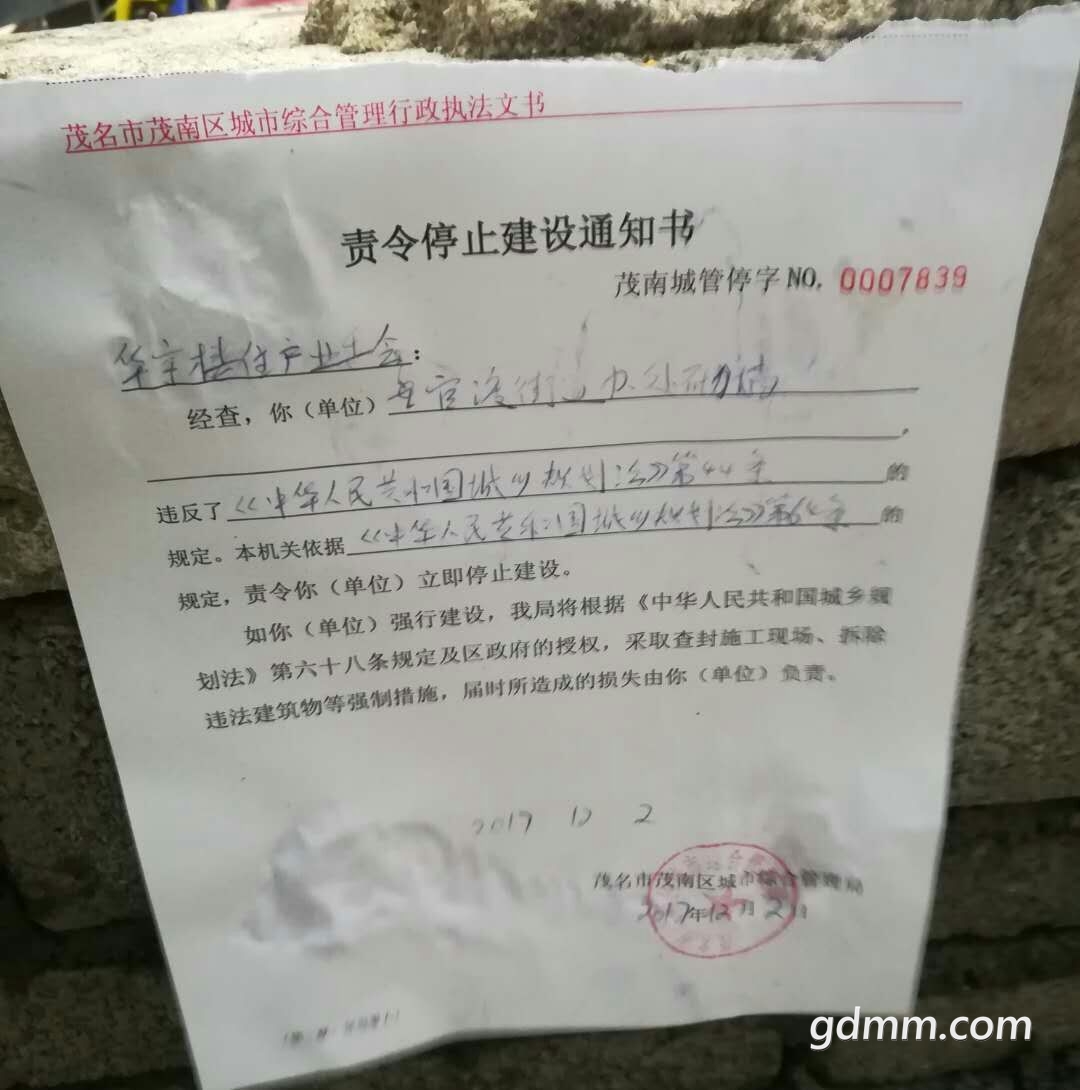 茂名市茂南区城市综合管理行政执法文书
责令停止建设通知书
茂南城管停字NO. 0007839
华宇 住产业 会：
经查，你（单位）在官渡街道办处
，
违反了《中华人民共和国城乡规划法》第44条的
规定。本机关依据《中华人民共和国城乡规划法》第64条的
规定，责令你（单位）立即停止建设。
如你（单位）强行建设，我局将根据《中华人民共和国城乡规
划法》第六十八条规定及区政府的授权，采取查封施工现场、拆除
违法建筑物等强制措施，届时所造成的损失由你（单位）负责。
2017 12 2
茂名市茂南区城市综合管理局
2017年12月2日
gdmm.com